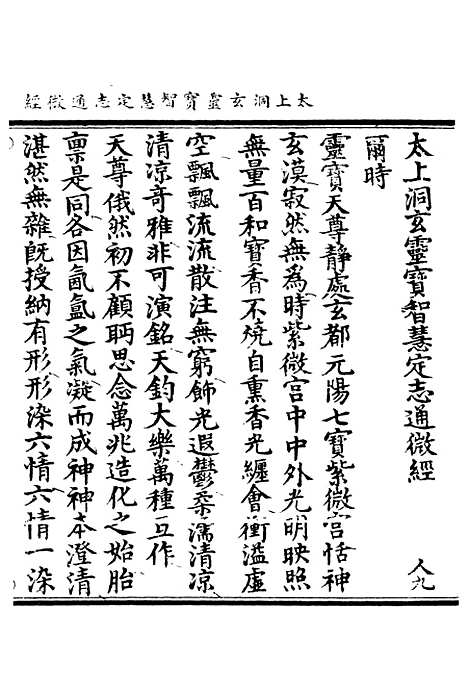 太上洞玄靈寶智慧定志通微經
太上洞玄靈寶智慧定志通微經 人九
爾時
靈寶天尊靜處玄都元陽七寶紫微宮恬神
玄漠寂然無為時紫微宮中中外光明映照
無量百和寶香不燒自熏香光纏會衝溢虛
空飄飄流流散注無窮飾光遐鬱柔濡清凉
清凉哥雅非可演銘天鈞大樂萬種互作
天尊俄然初不顧眄思念萬兆造化之始胎
禀是同各因氤氳之氣凝而成神神本澄清
湛然無雜旣授納有形形染六情六情一染